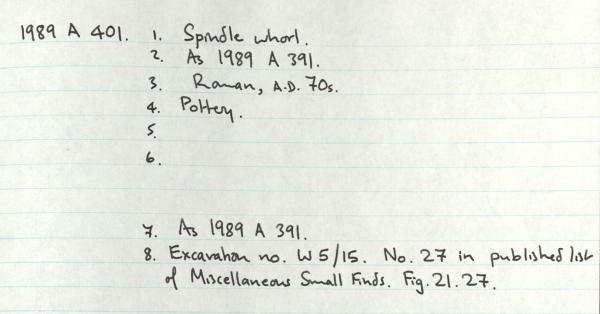 1989 A 401. 1. Spindle whorl.
2. As 1989 A 391.
3. Roman, A.D. 70s.
4. Pottery.
5.
6.
7. As 1989 A 391.
8. Excavation no. W5/15. No. 27 in published list
of Miscellaneous Small Finds. Fig. 21.27.